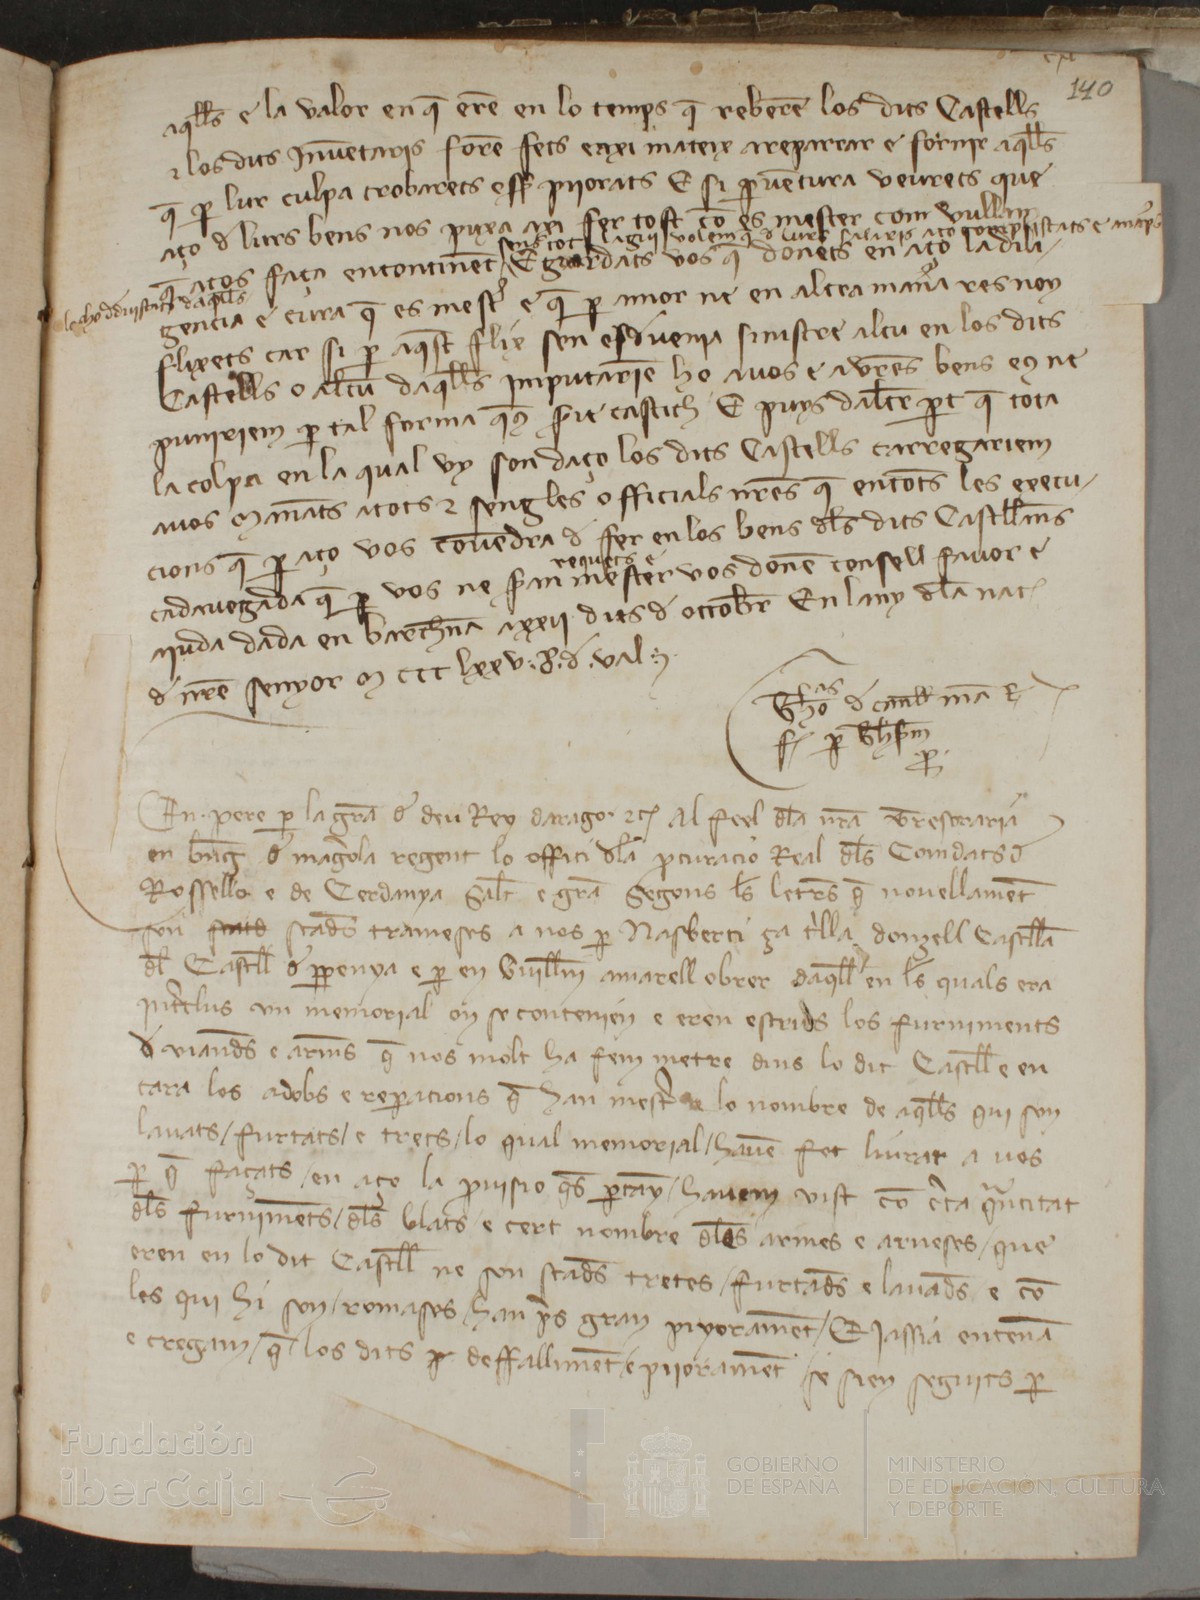 140
aqlls e la valor en q eren en lo temps q reberen los dits Castells
e los dits Inventaris foren fets e axi mateix a reparar e fornir aqlls
q per lur culpa trobarets esser piiorats E si per ventura veurets que
aço d lurs bens nos puxa axi fer tost co es mester com vullam
sens tot lagui volem q d lurs salaris
q aços faça encontinent E guardats vos q donets en aço la dili
gencia e cura q es mester e q per amor ne en altra manera res noy
flixets car si per aqst flix sen esdevenia sinistre algu en los dits
Castells o alcun daqlls imputariem ho a vos e a vres bens eus ne
puniriem per tal forma queus seria castich E puys daltre part q tota
la colpa en la qual vuy son daço los dits Castells carregariem
a vos manats a tots e sengles officials nres q en totes les execu
cions q per aço vos covendra d fer en los bens dls dits Castllans
requests e
cada vegada q per vos ne seran mester vos donen consell favor e
aiuda dada en barchna a xxii dies d octobre En lany dla nat
d nre senyor M CCC lxxv. R. d. val
En pere per la gra d deu Rey darago etc Al feel dla nra tresoraria
en bng d magola regent lo offici dla procuracio Real dls Comdats d
Rossello e de Cerdanya Salt e gra Segons ls letres q novellament
son stades trameses a nos per Nasbert ça tlla donzell Castlla
dl Castll d perpenya e per en Guillm amarell obrer daqll en ls quals era
interclus un memorial on se contenien e eren escrits los furniments
d viandes e armes q nos molt ha fem metre dins lo dit Castll e en
cara los adobs e reparacions q han mester e lo nombre de aqlls qui son
lavats / furtats / e trets / lo qual memorial / havem fet liurar a vos
per q façats / en aço la provisio qs pertany / havem vist co certa quantitat
dls furniments / dls blats e cert nombre dls armes e arneses / que
eren en lo dit Castll ne son stades tretes / furtades e lavades e co
les qui hi son / romases / han pres gran piyorament / E jassia entenam
e cregam / q los dits deffalliment e piiorament / se sien seguits per
Fundación
iberCaja
GOBIERNO
DE ESPAÑA
MINISTERIO
DE EDUCACIÓN, CULTURA
Y DEPORTE